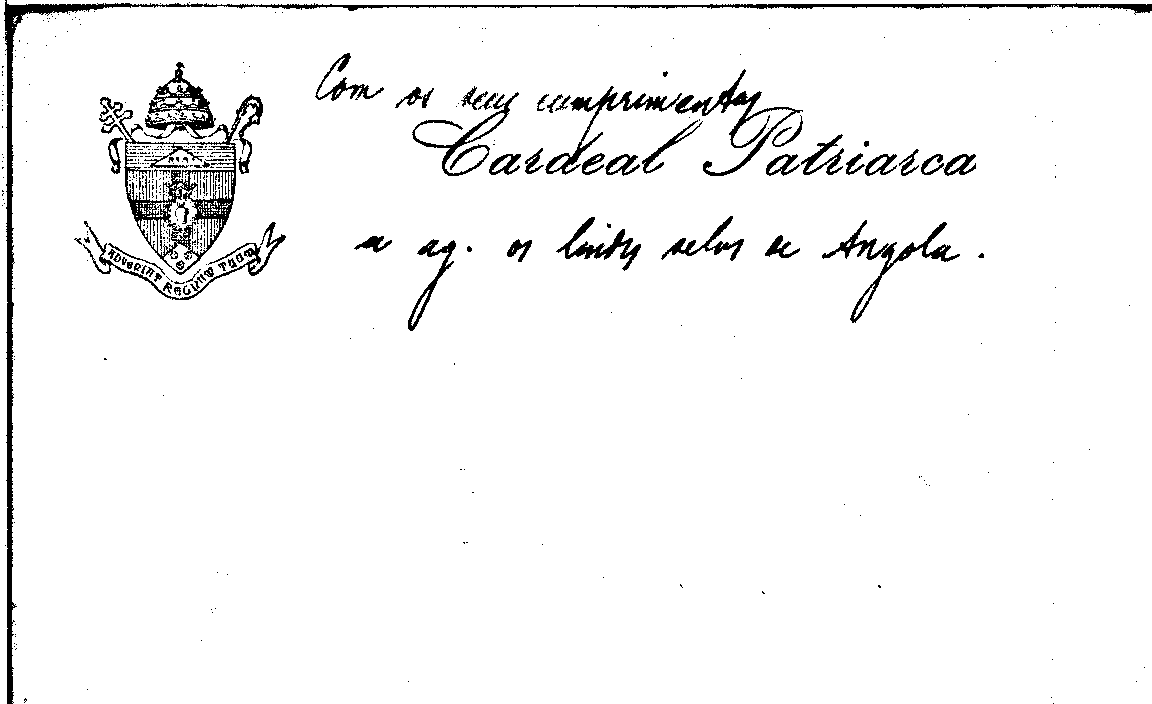 Com os seus cumprimentos
Cardeal Patriarca
e ag. os lindos selos de Angola.
ADVENIAT REGNUM TUUM